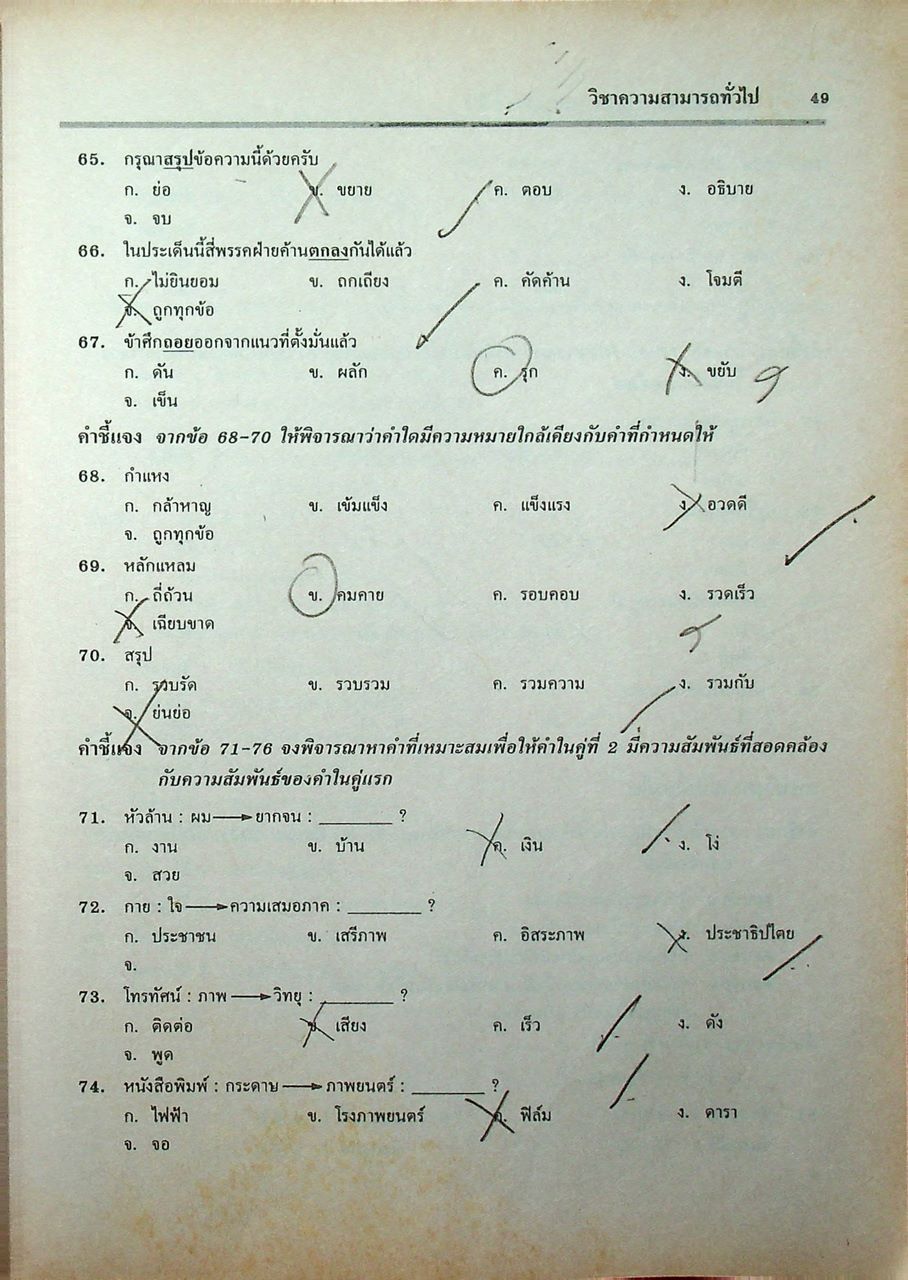 วิชาความสามารถทั่วไป 49
65. กรุณาสรุปข้อความนี้ด้วยครับ
ก. ย่อ ข. ขยาย ค. ตอบ ง. อธิบาย
จ. จบ
66. ในประเด็นนี้สี่พรรคฝ่ายค้านตกลงกันได้แล้ว
ก. ไม่ยินยอม ข. ถกเถียง ค. คัดค้าน ง. โจมตี
จ. ถูกทุกข้อ
67. ข้าศึกถอยออกจากแนวที่ตั้งมั่นแล้ว
ก. ดัน ข. ผลัก ค. รุก ง. ขยับ
จ. เข็น
คำชี้แจง จากข้อ 68-70 ให้พิจารณาว่าคำใดมีความหมายใกล้เคียงกับคำที่กำหนดให้
68. กำแหง
ก. กล้าหาญ ข. เข้มแข็ง ค. แข็งแรง ง. อวดดี
จ. ถูกทุกข้อ
69. หลักแหลม
ก. ถี่ถ้วน ข. คมคาย ค. รอบคอบ ง. รวดเร็ว
จ. เฉียบขาด
70. สรุป
ก. รวบรัด ข. รวบรวม ค. รวมความ ง. รวมกับ
จ. ย่นย่อ
คำชี้แจง จากข้อ 71-76 จงพิจารณาหาคำที่เหมาะสมเพื่อให้คำในคู่ที่ 2 มีความสัมพันธ์ที่สอดคล้อง
กับความสัมพันธ์ของคำในคู่แรก
71. หัวล้าน : ผม → ยากจน : ________ ?
ก. งาน ข. บ้าน ค. เงิน ง. โง่
จ. สวย
72. กาย : ใจ → ความเสมอภาค : ________ ?
ก. ประชาชน ข. เสรีภาพ ค. อิสระภาพ ง. ประชาธิปไตย
จ.
73. โทรทัศน์ : ภาพ → วิทยุ : ________ ?
ก. ติดต่อ ข. เสียง ค. เร็ว ง. ดัง
จ. พูด
74. หนังสือพิมพ์ : กระดาษ → ภาพยนตร์ : ________ ?
ก. ไฟฟ้า ข. โรงภาพยนตร์ ค. ฟิล์ม ง. ดารา
จ. จอ